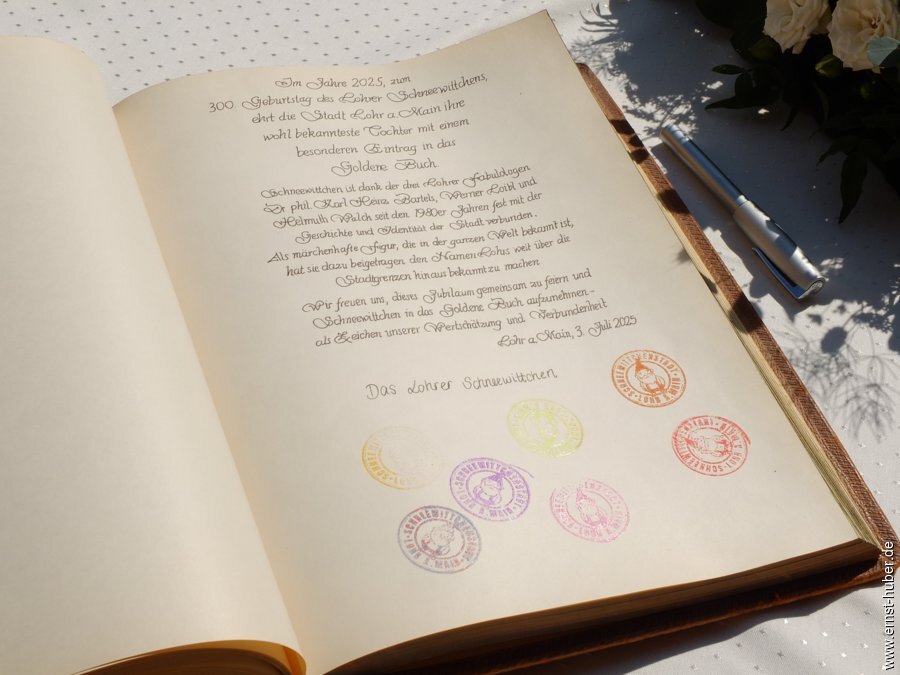 Im Jahre 2025, zum
300. Geburtstag des Lohrer Schneewittchens,
ehrt die Stadt Lohr a. Main ihre
wohl bekannteste Tochter mit einem
besonderen Eintrag in das
Goldene Buch.
Schneewittchen ist dank der drei Lohrer Fabulologen
Dr. phil. Karl Heinz Bartels, Werner Loibl und
Helmuth Walch seit den 1980er Jahren fest mit der
Geschichte und Identität der Stadt verbunden.
Als märchenhafte Figur, die in der ganzen Welt bekannt ist,
hat sie dazu beigetragen, den Namen Lohrs weit über die
Stadtgrenzen hinaus bekannt zu machen.
Wir freuen uns, dieses Jubiläum gemeinsam zu feiern und
Schneewittchen in das Goldene Buch aufzunehmen -
als Zeichen unserer Wertschätzung und Verbundenheit
Lohr a. Main, 3. Juli 2025
Das Lohrer Schneewittchen
SCHNEEWITTCHENSTADT · LOHR A. MAIN
www.ernst-huber.de